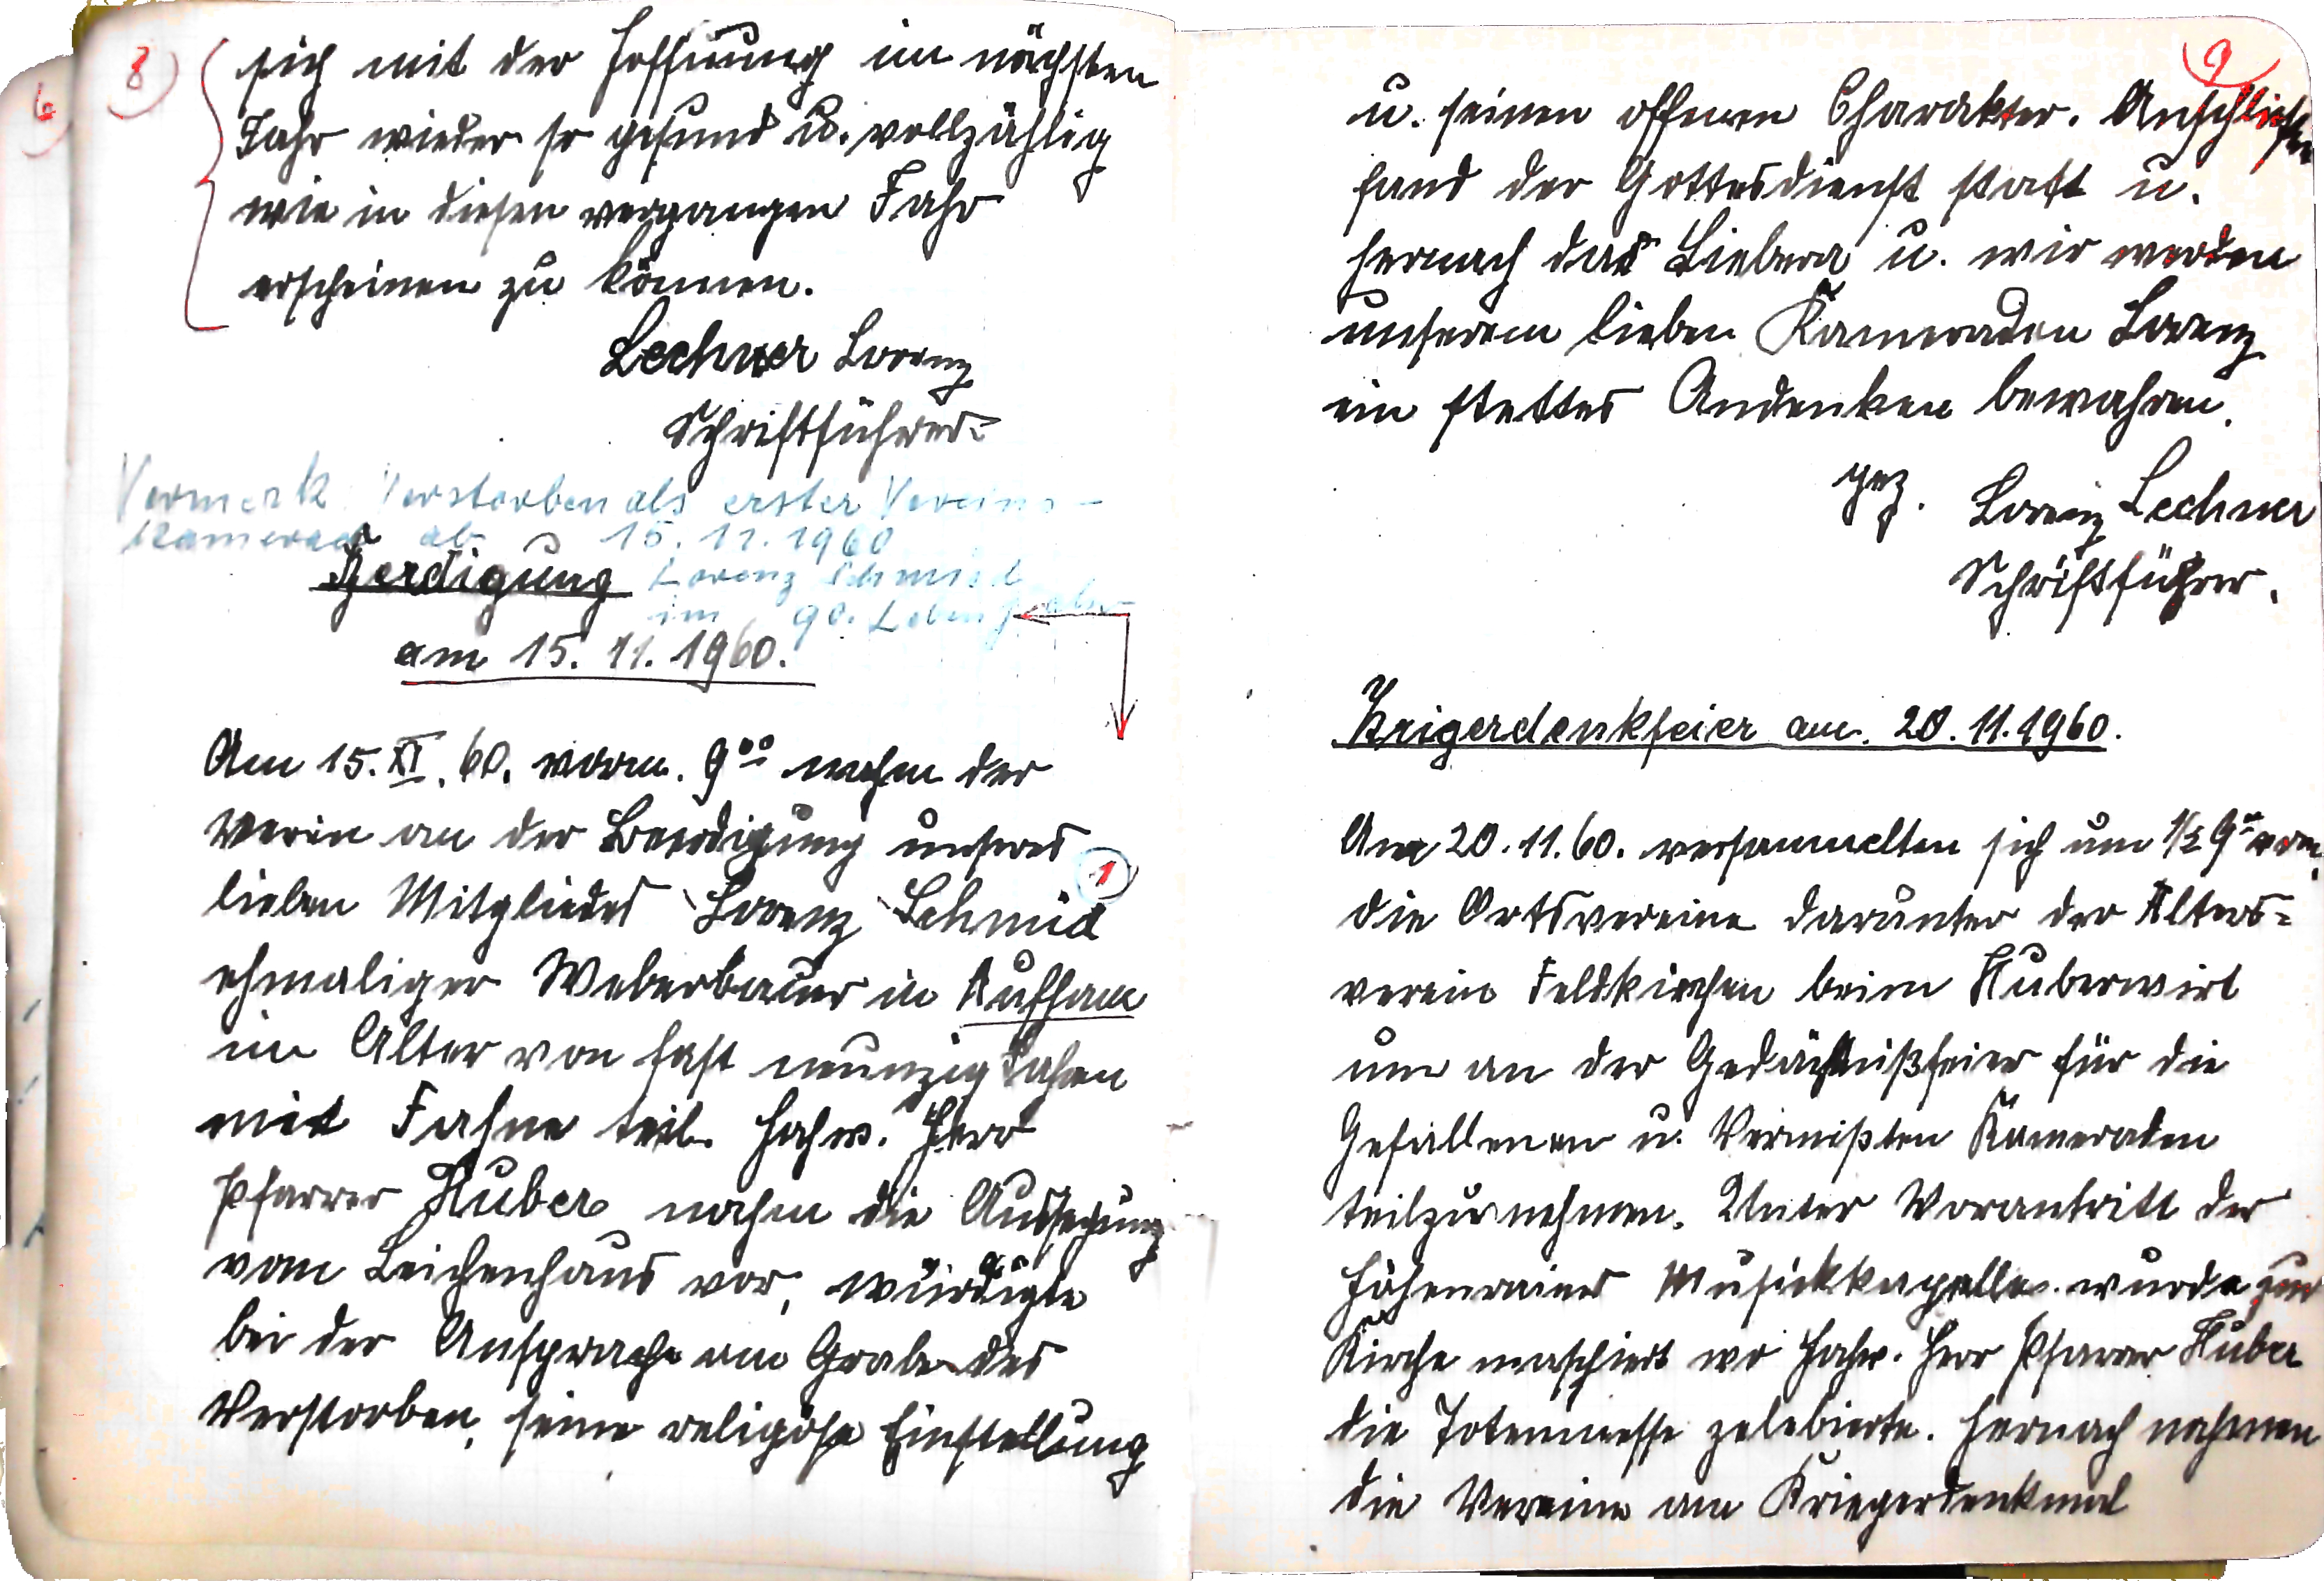 8)
sich mit der Hoffnung im nächsten
Jahr wieder so gesund u. vollzählig
wie in diesen vergangen Jahr
erscheinen zu können.
Lechner Lorenz
Schriftführer.
Vermerk Verstorben als erster Vereins-
kamerad ab 15.11.1960
Lorenz Schmid
im 90. Lebensjahr
Berdigung
am 15. 11. 1960.
Am 15. XI. 60. vorm. 9⁰⁰ nahm der
Verein an der Beerdigung unseres
lieben Mitgliedes Lorenz Schmid
1
ehmaliger Weberbauer in Aufham
im Alter von fast neunzig Jahren
mit Fahne teil. Hohw. Herr
Pfarrer Huber nahm die Aussegung
vom Leichenhaus vor, würdigte
bei der Ansprache am Grabe des
Verstorben, seine religöse Einstellung
6)
9)
u. seinen offenen Charakter. Anschließen
fand der Gottesdienst statt u.
hernach das Liebera u. wir werden
unserem lieben Kameraden Lorenz
ein stettes Andenken bewahren.
gez. Lorenz Lechner
Schriftführer.
Krigerdenkfeier am. 20. 11. 1960.
Am 20. 11. 60. versammelten sich um 1/2 9⁰⁰ vorm.
die Ortsvereine darunter der Alters=
verein Feldkirchen beim Huberwirt
um an der Gedächtnißfeier für die
Gefallenen u. Vermißten Kameraden
teilzunehmen. Unter Vorantritt der
Höhenrainer Musickkapelle wurde zur
Kirche maschiert wo Hohw. Herr Pfarrer Huber
die Totenmesse zelebierte. Hernach nahmen
die Vereine am Kriegerdenkmal